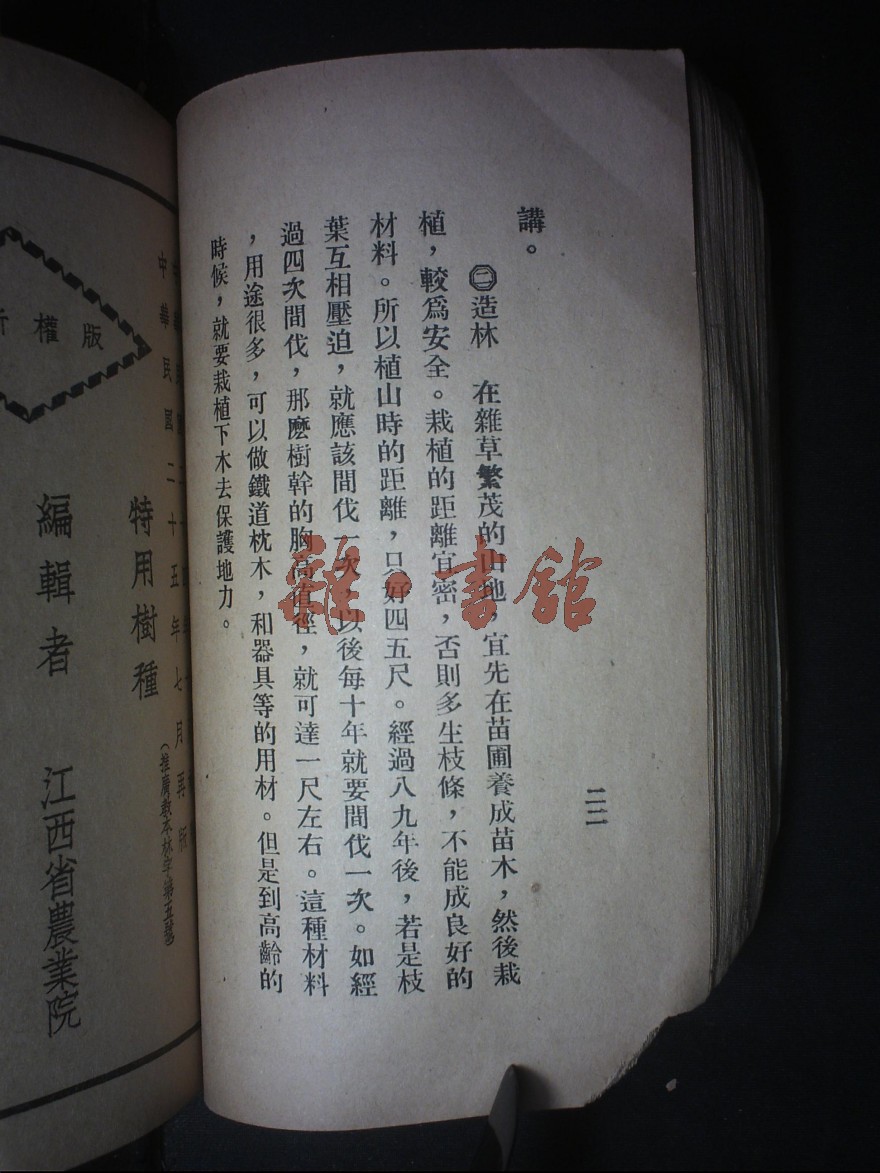 二二
講。
㊁造林　在雜草繁茂的山地，宜先在苗圃養成苗木，然後栽
植，較爲安全。栽植的距離宜密，否則多生枝條，不能成良好的
材料。所以植山時的距離，只好四五尺。經過八九年後，若是枝
葉互相壓迫，就應該間伐一次，以後每十年就要間伐一次。如經
過四次間伐，那麽樹幹的胸高直徑，就可達一尺左右。這種材料
，用途很多，可以做鐵道枕木，和器具等的用材。但是到高齡的
時候，就要栽植下木去保護地力。
中華民國二十五年七月再版
特用樹種
（推廣教本林字第五號）
編輯者　江西省農業院
版權所
書館